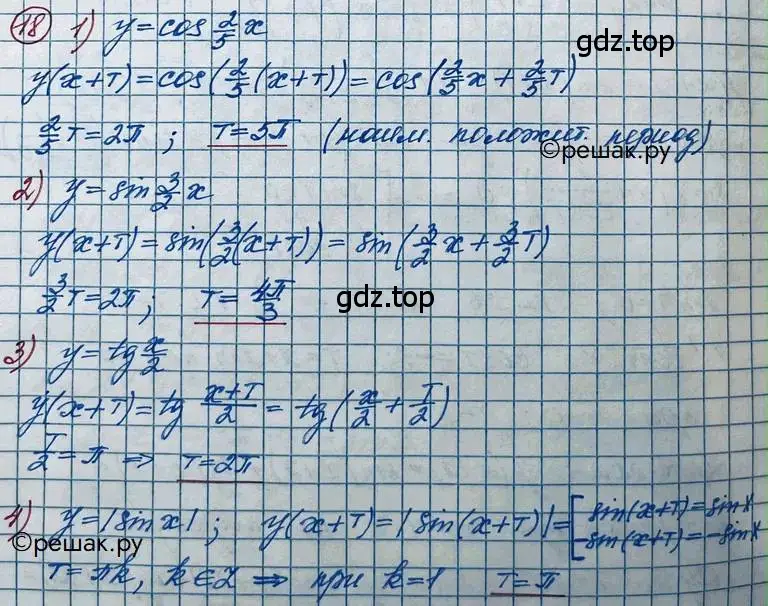 18 1) y=cos 2/5 x
gdz.top
y(x+T)=cos(2/5 (x+T))=cos(2/5 x + 2/5 T)
2/5 T=2π ; T=5π (наим. положит. период)
©решак.ру
2) y=sin 3/2 x
y(x+T)=sin(3/2(x+T))=sin(3/2 x + 3/2 T)
3/2 T=2π; T= 4π/3
gdz.top
3) y=tg x/2
y(x+T)=tg (x+T)/2 = tg(x/2 + T/2)
T/2=π ⇒ T=2π
4) y=|sin x| ; y(x+T)=|sin(x+T)|=[ sin(x+T)=sin x
-sin(x+T)=-sin x
©решак.ру
T=πk, k∈Z ⇒ при k=1 T=π